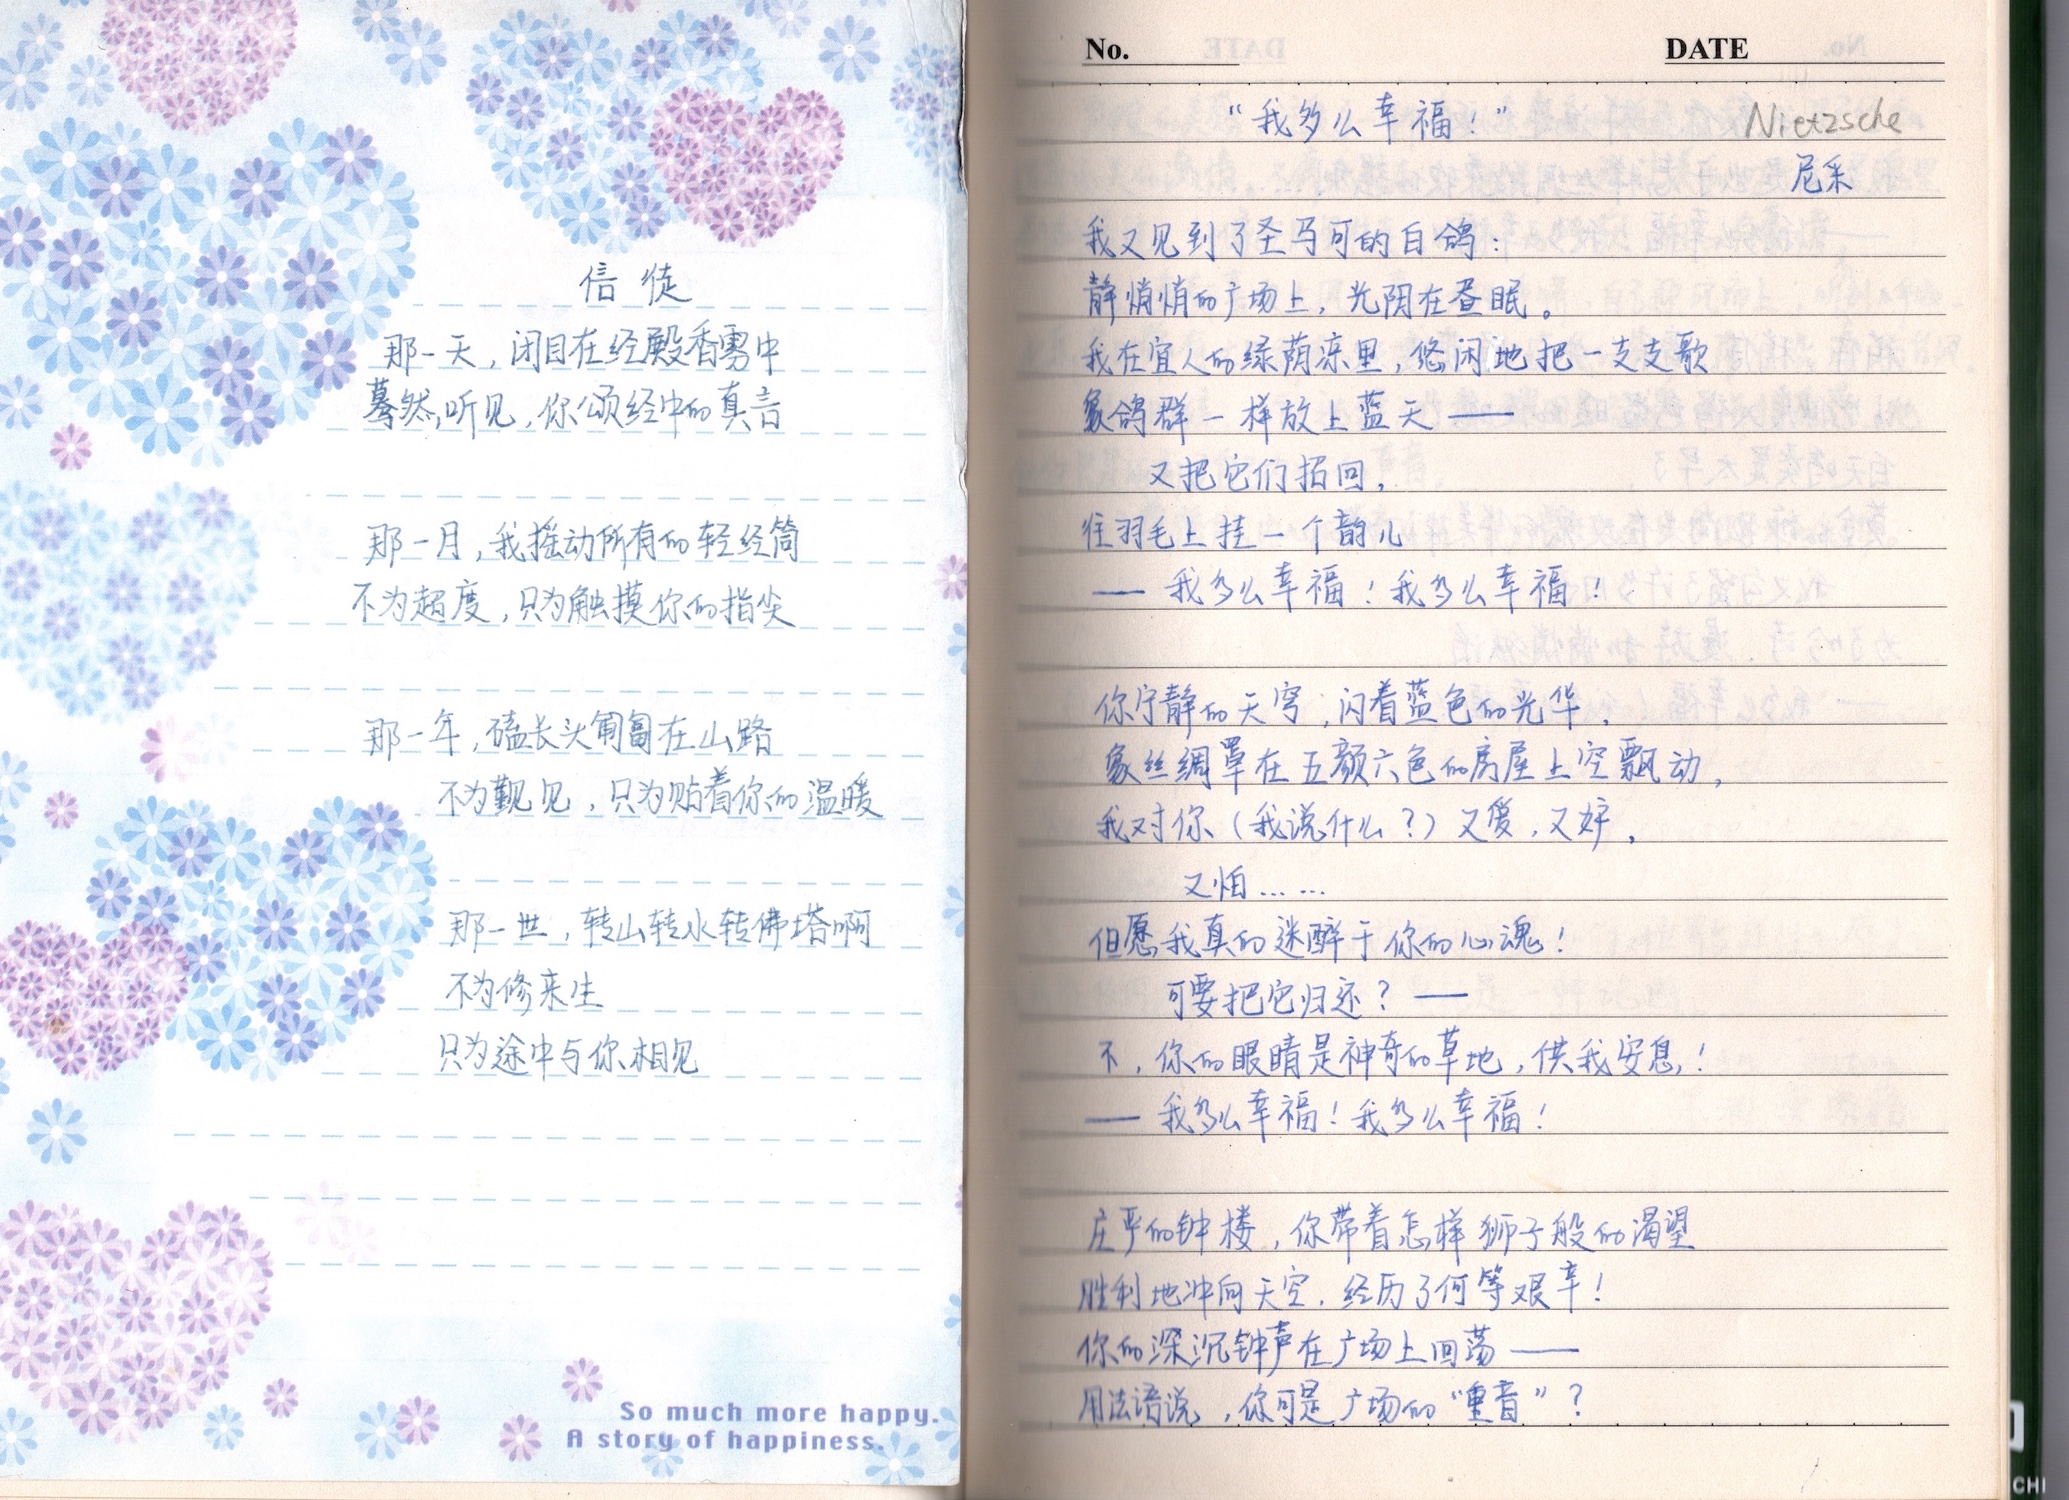 信徒
那一天，闭目在经殿香雾中
蓦然，听见，你颂经中的真言
那一月，我摇动所有的轻经筒
不为超度，只为触摸你的指尖
那一年，磕长头匍匐在山路
不为觐见，只为贴着你的温暖
那一世，转山转水转佛塔啊
不为修来生
只为途中与你相见
So much more happy.
A story of happiness.
No. DATE
“我多么幸福！” Nietzsche
尼采
我又见到了圣马可的白鸽：
静悄悄的广场上，光阴在昼眠。
我在宜人的绿荫凉里，悠闲地把一支支歌
象鸽群一样放上蓝天——
又把它们招回，
往羽毛上挂一个韵儿
——我多么幸福！我多么幸福！
你宁静的天穹，闪着蓝色的光华，
象丝绸罩在五颜六色的房屋上空飘动，
我对你（我说什么？）又爱，又妒，
又怕……
但愿我真的迷醉于你的心魂！
可要把它归还？——
不，你的眼睛是神奇的草地，供我安息！
——我多么幸福！我多么幸福！
庄严的钟楼，你带着怎样狮子般的渴望
胜利地冲向天空，经历了何等艰辛！
你的深沉钟声在广场上回荡——
用法语说，你可是广场的“重音”？
CHI